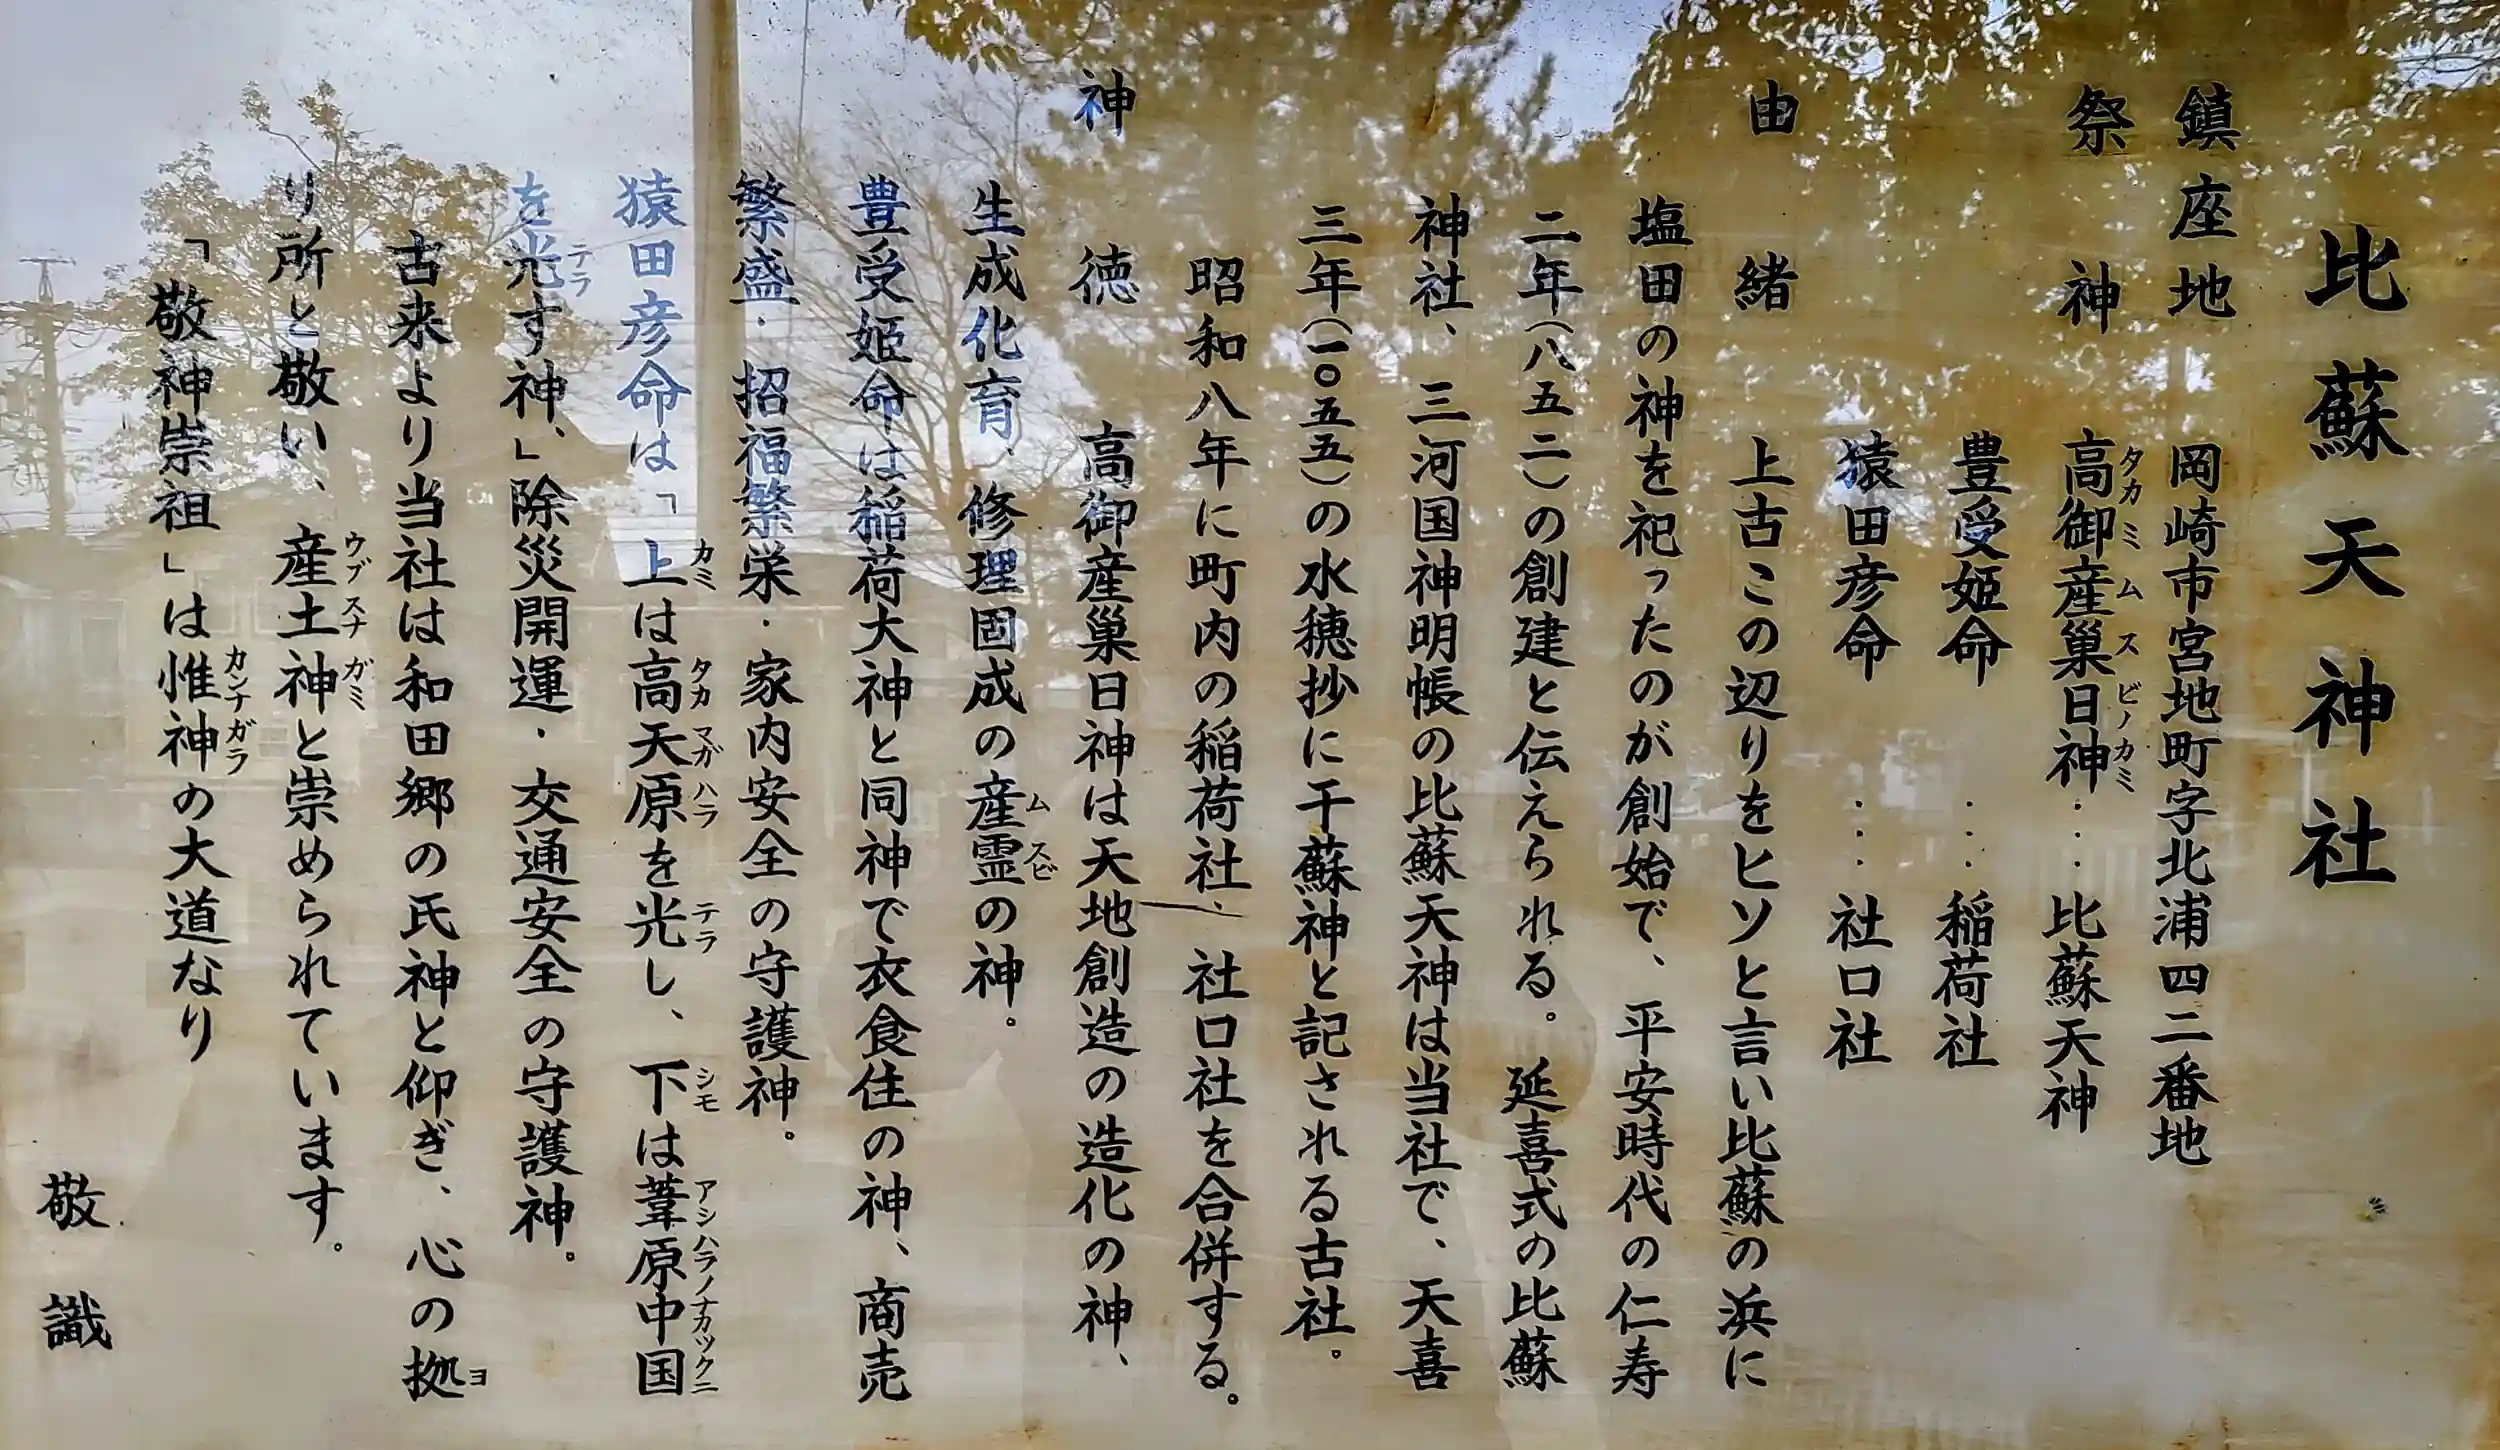 比蘇天神社
鎮座地 岡崎市宮地町字北浦四二番地
祭神 高御産巣日神…比蘇天神
タカミムスビノカミ
豊受姫命 …稲荷社
猿田彦命 …社口社
由緒 上古この辺りをヒソと言い比蘇の浜に
塩田の神を祀ったのが創始で、平安時代の仁寿
二年(八五二)の創建と伝えられる。延喜式の比蘇
神社、三河国神明帳の比蘇天神は当社で、天喜
三年(一〇五五)の水穂抄に干蘇神と記される古社。
昭和八年に町内の稲荷社、社口社を合併する。
神徳 高御産巣日神は天地創造の造化の神、
生成化育、修理固成の産霊の神。
ムスビ
豊受姫命は稲荷大神と同神で衣食住の神、商売
繁盛・招福繁栄・家内安全の守護神。
猿田彦命は「上は高天原を光し、下は葦原中国
カミ タカマガハラ テラ シモ アシハラノナカツクニ
を光す神、」除災開運・交通安全の守護神。
テラ
古来より当社は和田郷の氏神と仰ぎ、心の拠
ヨ
り所と敬い、産土神と崇められています。
ウブスナガミ
「敬神崇祖」は惟神の大道なり
カンナガラ
敬識